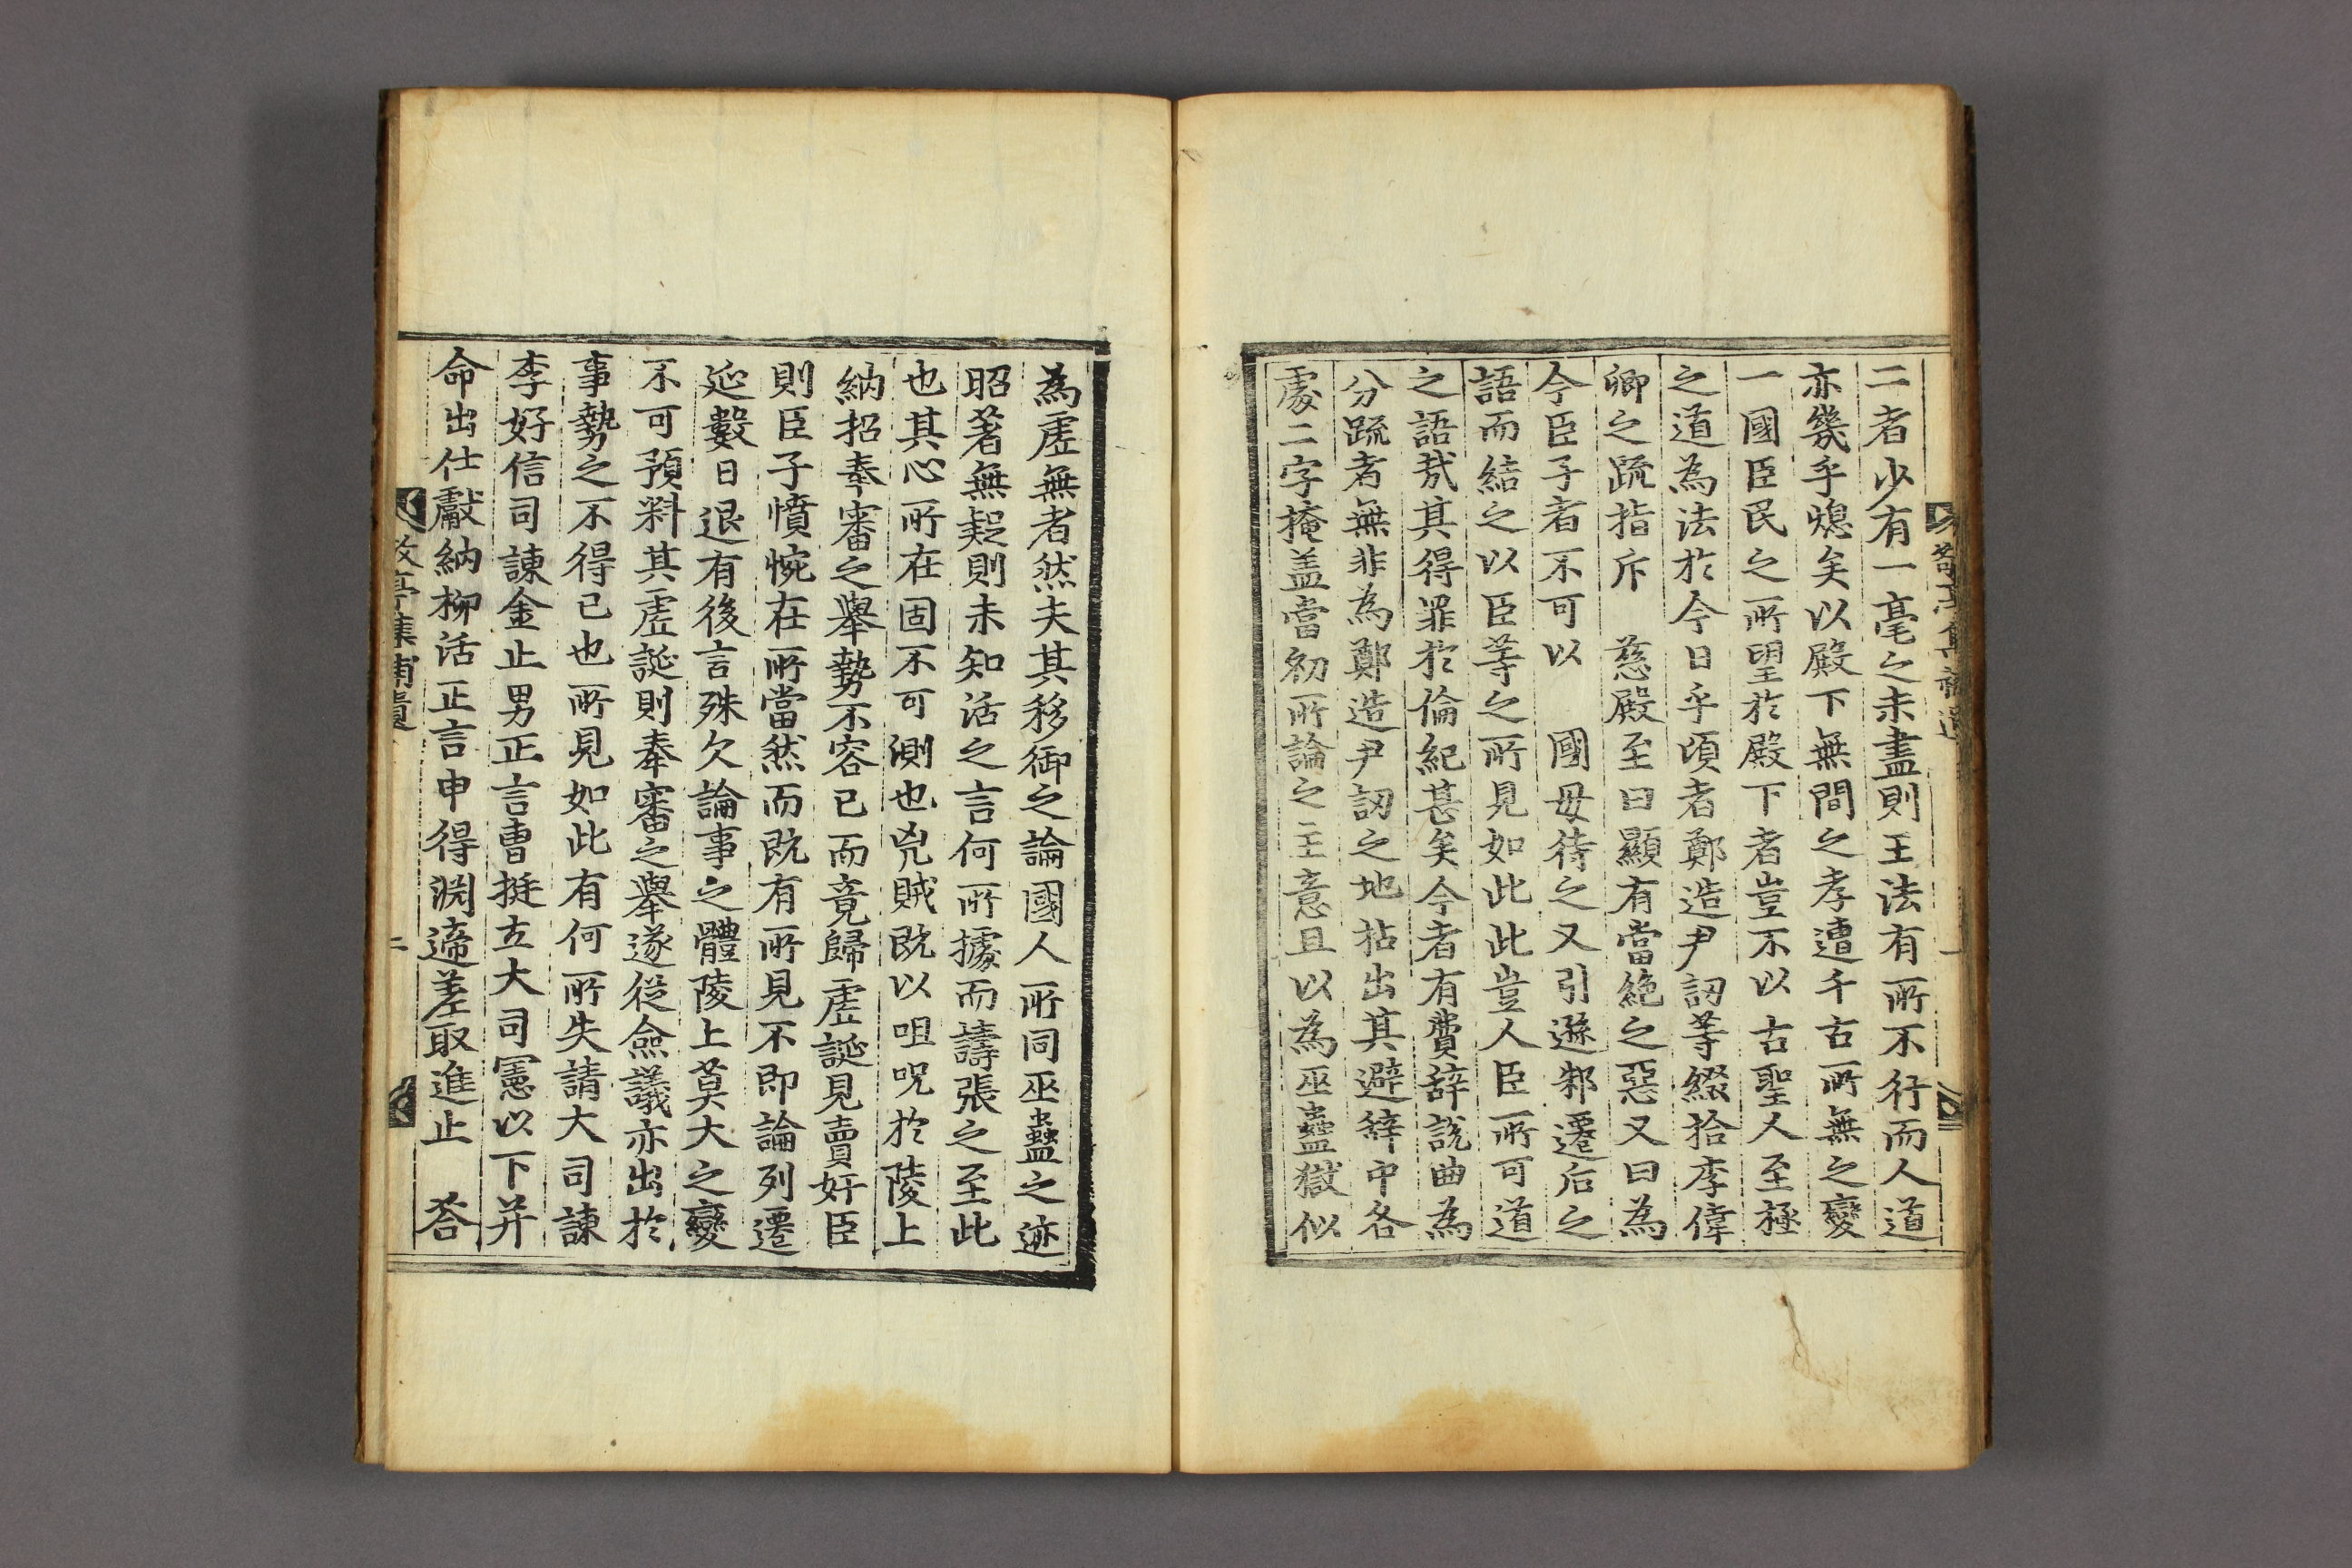 二者少有一毫之未盡則王法有所不行而人道
亦幾乎熄矣以殿下無間之孝遭千古所無之變
一國臣民之所望於殿下者豈不以古聖人至極
之道為法於今日乎頃者鄭造尹訒等綴拾李偉
卿之疏指斥　慈殿至曰顯有當絶之惡又曰為
今臣子者不可以　國母待之又引遜邾遷后之
語而結之以臣等之所見如此此豈人臣所可道
之語哉其得罪於倫紀甚矣今者有費辭說曲為
分疏者無非為鄭造尹訒之地拈出其避辭中各
處二字掩盖當初所論之主意且以為巫蠱獄似
為虛無者然夫其移御之論國人所同巫蠱之迹
昭著無疑則未知活之言何所據而譸張之至此
也其心所在固不可測也兇賊既以咀呪於陵上
納招奉審之舉勢不容已而竟歸虛誕見賣奸臣
則臣子憤惋在所當然而既有所見不即論列遷
延數日退有後言殊欠論事之體陵上莫大之變
不可預料其虛誕則奉審之舉遂從僉議亦出於
事勢之不得已也所見如此有何所失請大司諫
李好信司諫金止男正言曹挺立大司憲以下并
命出仕獻納柳活正言申得淵遞差取進止　答
敬亭集補遺
二